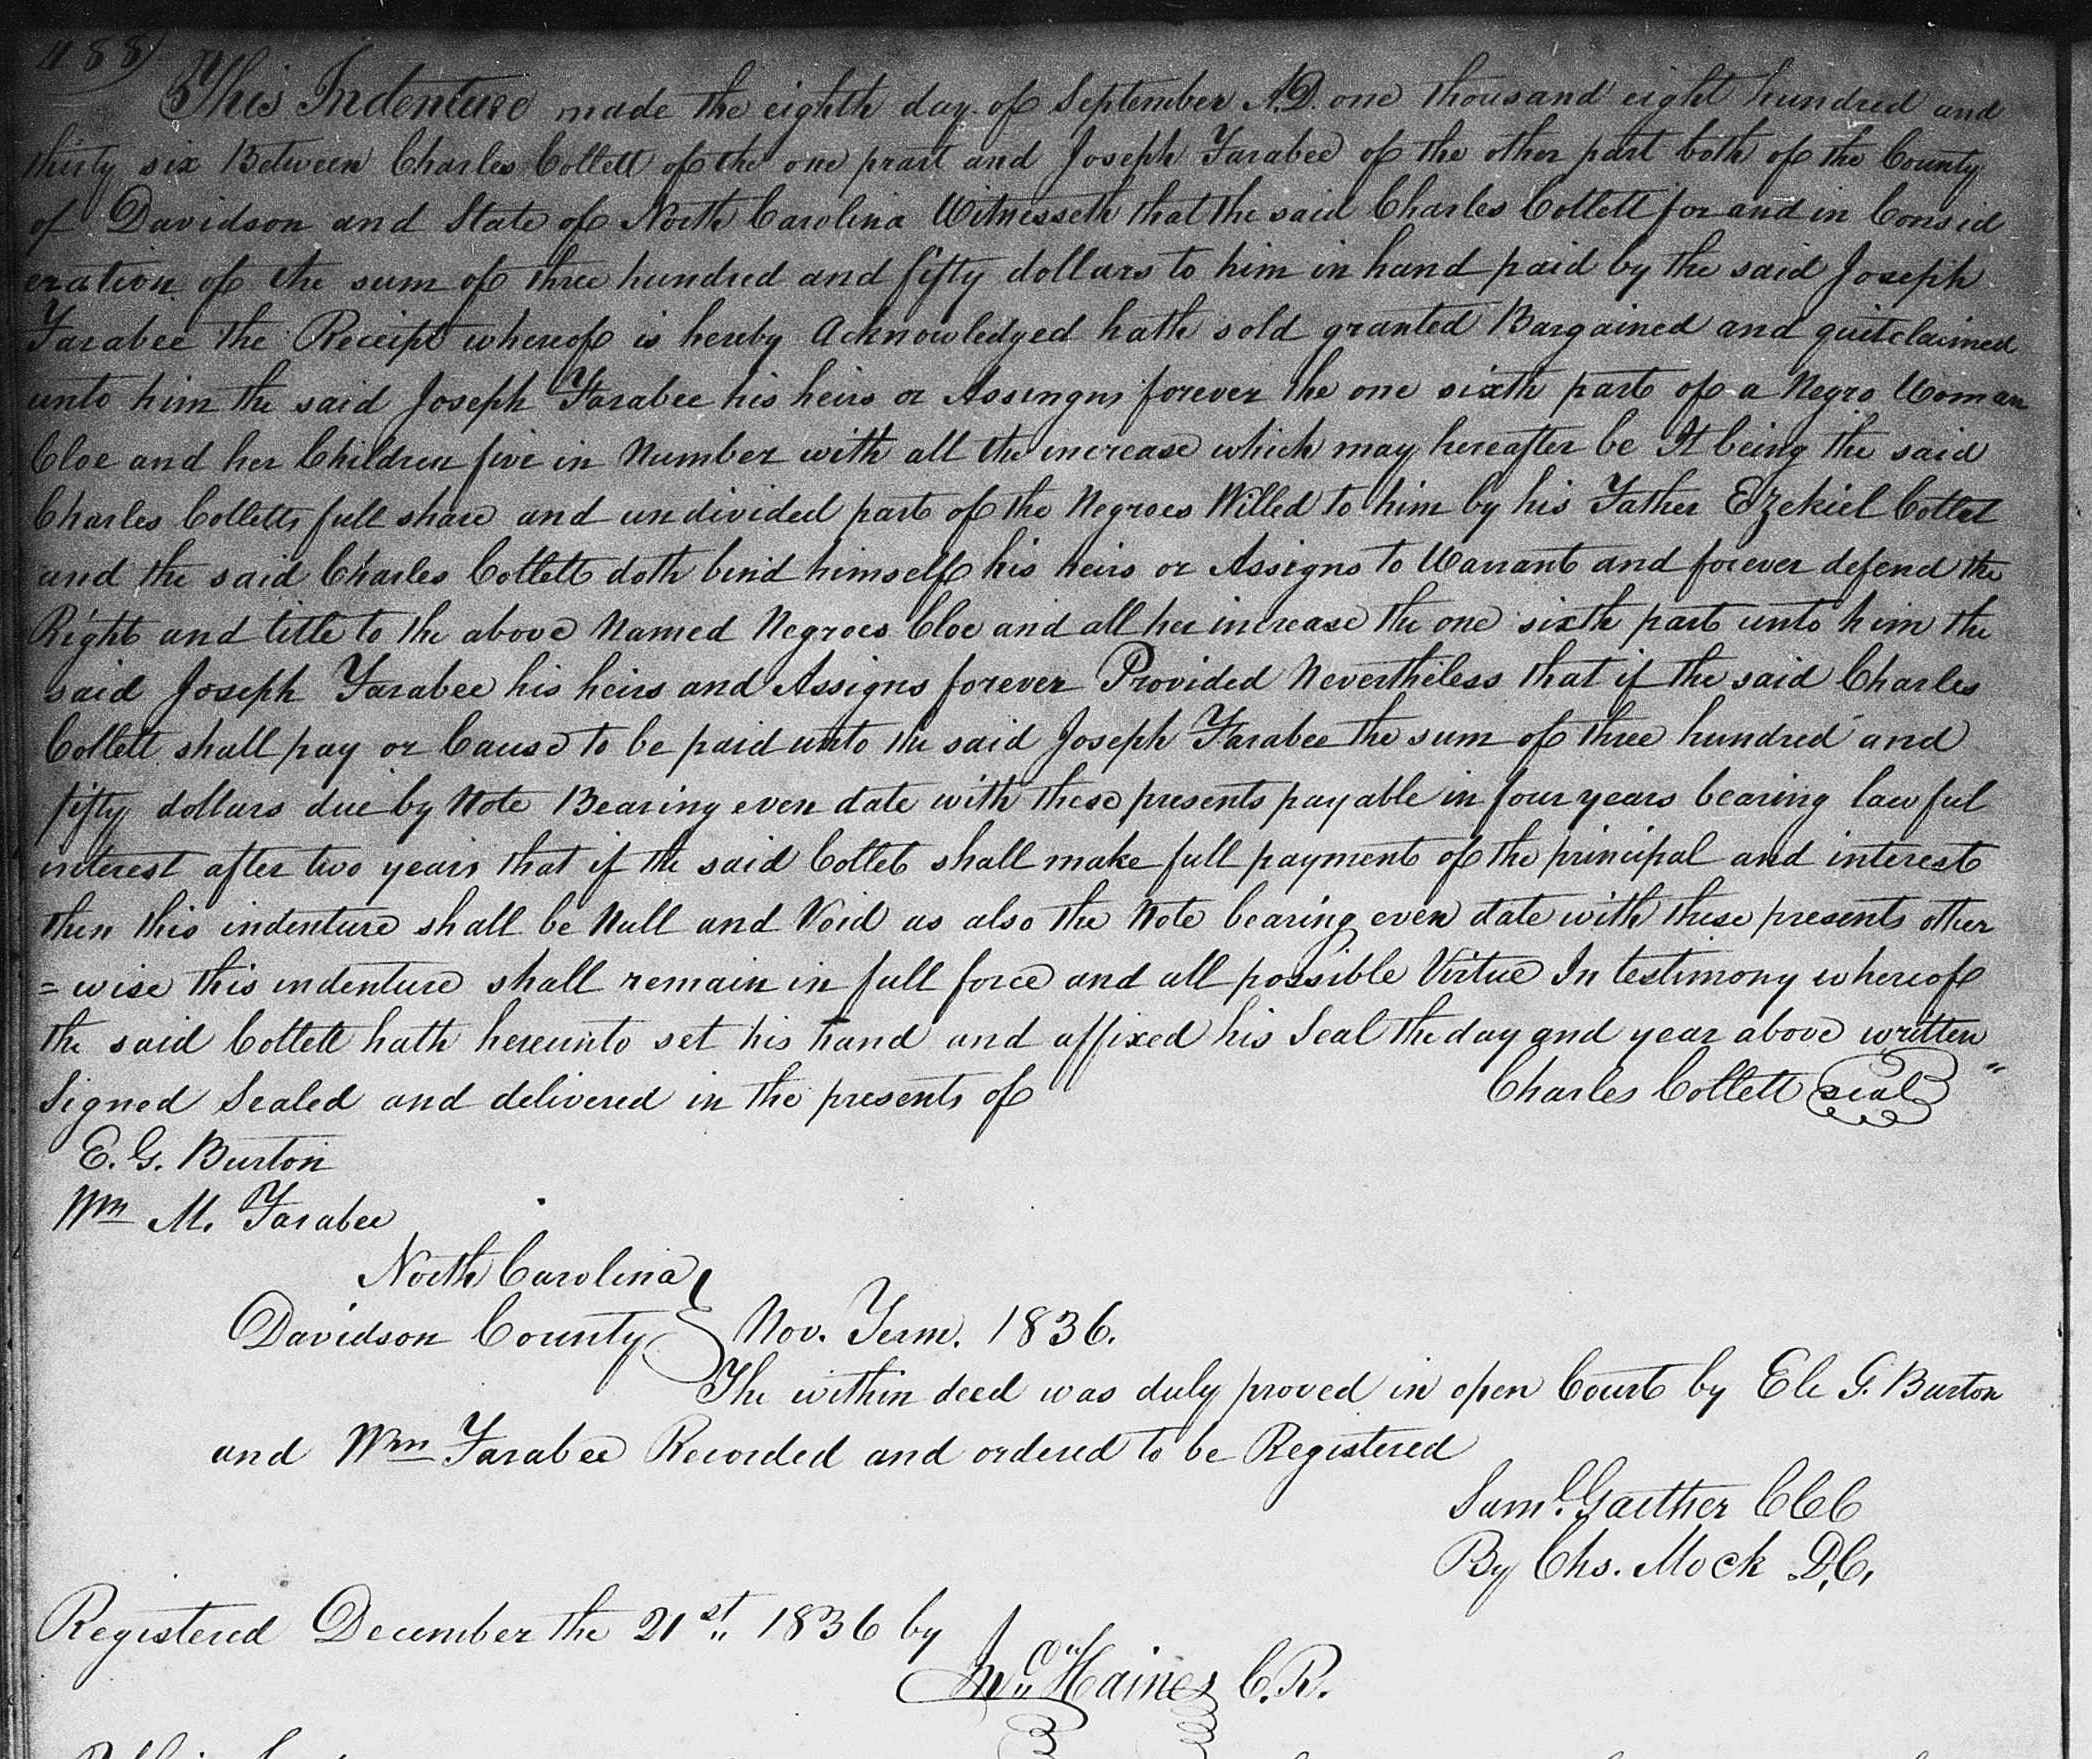 488)
This Indenture made the eighth day of September A.D. one thousand eight hundred and
thirty six Between Charles Collett of the one prart and Joseph Farabee of the other part both of the County
of Davidson and State of North Carolina Witnesseth that the said Charles Collett for and in Consid
eration of the sum of three hundred and fifty dollars to him in hand paid by the said Joseph
Farabee the Receipt whereof is hereby Acknowledged hath sold granted Bargained and quitclaimed
unto him the said Joseph Farabee his heirs or Assingns forever the one sixth part of a Negro Woman
Cloe and her Children five in Number with all the increase which may hereafter be It being the said
Charles Colletts full share and undivided part of the Negroes Willed to him by his Father Ezekiel Collet
and the said Charles Collett doth bind himself his heirs or Assigns to Warrant and forever defend the
Right and title to the above Named Negroes Cloe and all her increase the one sixth part unto him the
said Joseph Farabee his heirs and Assigns forever Provided Nevertheless that if the said Charles
Collett shall pay or Cause to be paid unto the said Joseph Farabee the sum of three hundred and
fifty dollars due by Note Bearing even date with these presents payable in four years bearing lawful
interest after two years that if the said Collet shall make full payment of the principal and interest
then this indenture shall be Null and Void as also the Note bearing even date with these presents other
=wise this indenture shall remain in full force and all possible Virtue In testimony whereof
the said Collett hath hereunto set his hand and affixed his Seal the day and year above written"
Signed Sealed and delivered in the presents of Charles Collett seal
E. G. Burton
Wm M. Farabee
North Carolina
Davidson County Nov. Term. 1836.
The within deed was duly proved in open Court by Eli G. Burton
and Wm Farabee Recorded and ordered to be Registered
Saml. Gaither CCC
By Chs. Mock D.C,
Registered December the 21st 1836 by
Jno Haines C.R.